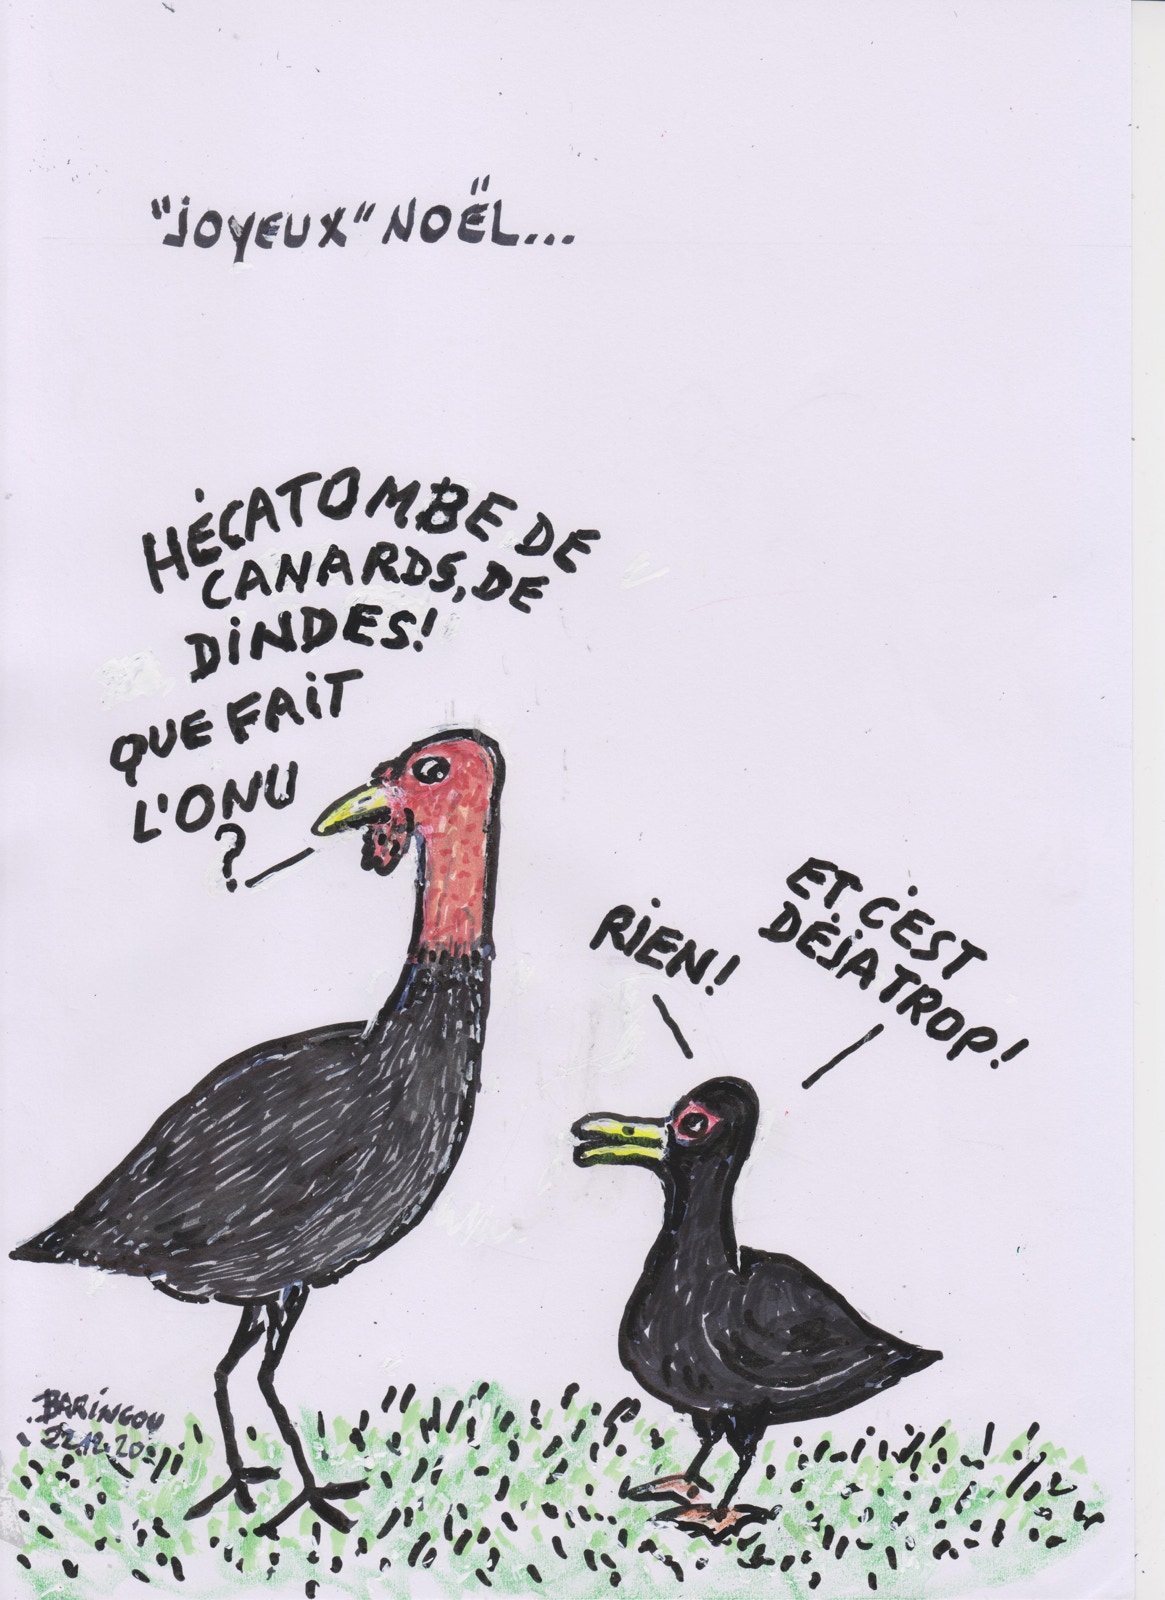 "JOYEUX" NOËL...
HÉCATOMBE DE
CANARDS, DE
DINDES!
QUE FAIT
L'ONU
?
RIEN!
ET C'EST
DÉJA TROP!
BARINGOU
22.12.20